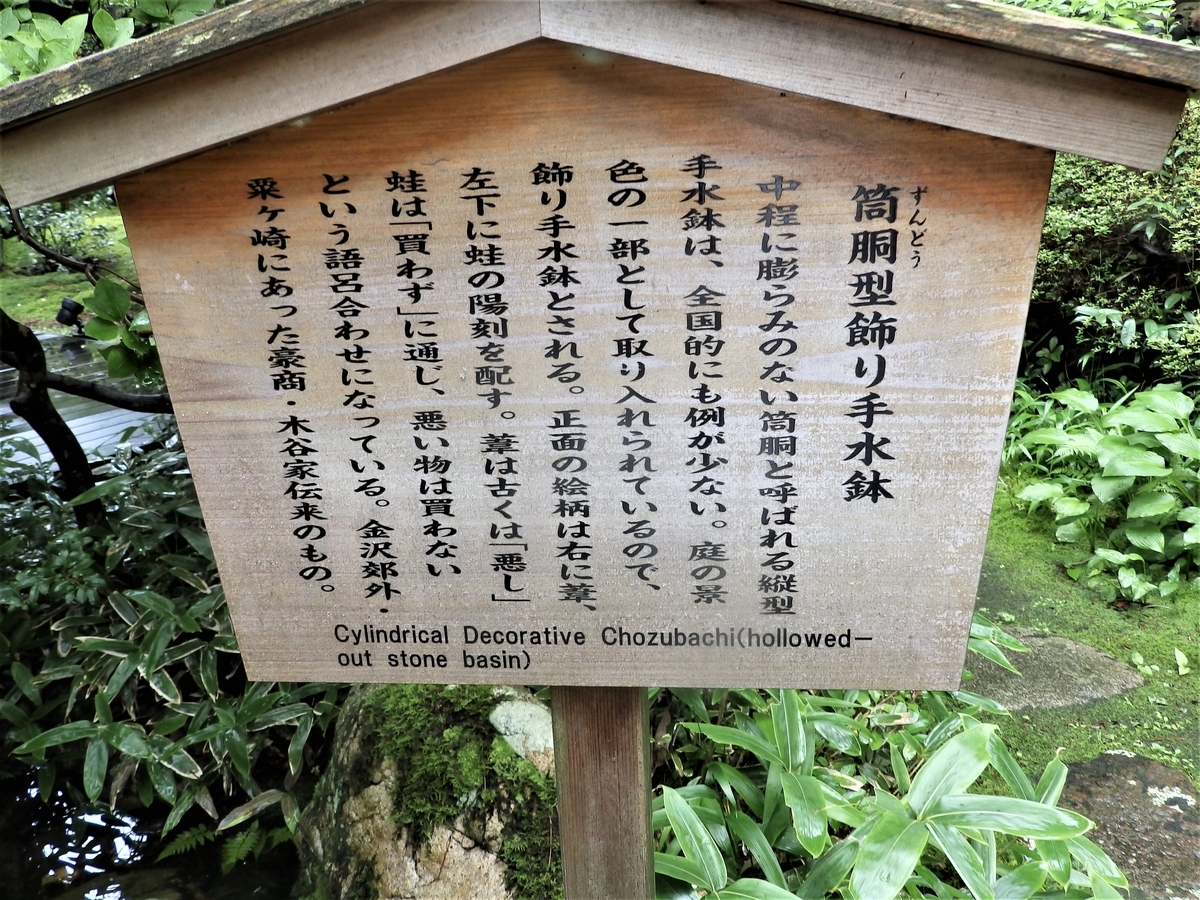 筒胴型飾り手水鉢
ずんどう
中程に膨らみのない筒胴と呼ばれる縦型
手水鉢は、全国的にも例が少ない。庭の景
色の一部として取り入れられているので、
飾り手水鉢とされる。正面の絵柄は右に葦、
左下に蛙の陽刻を配す。葦は古くは「悪し」
蛙は「買わず」に通じ、悪い物は買わない
という語呂合わせになっている。金沢郊外・
粟ヶ崎にあった豪商・木谷家伝来のもの。
Cylindrical Decorative Chozubachi(hollowed-
out stone basin)